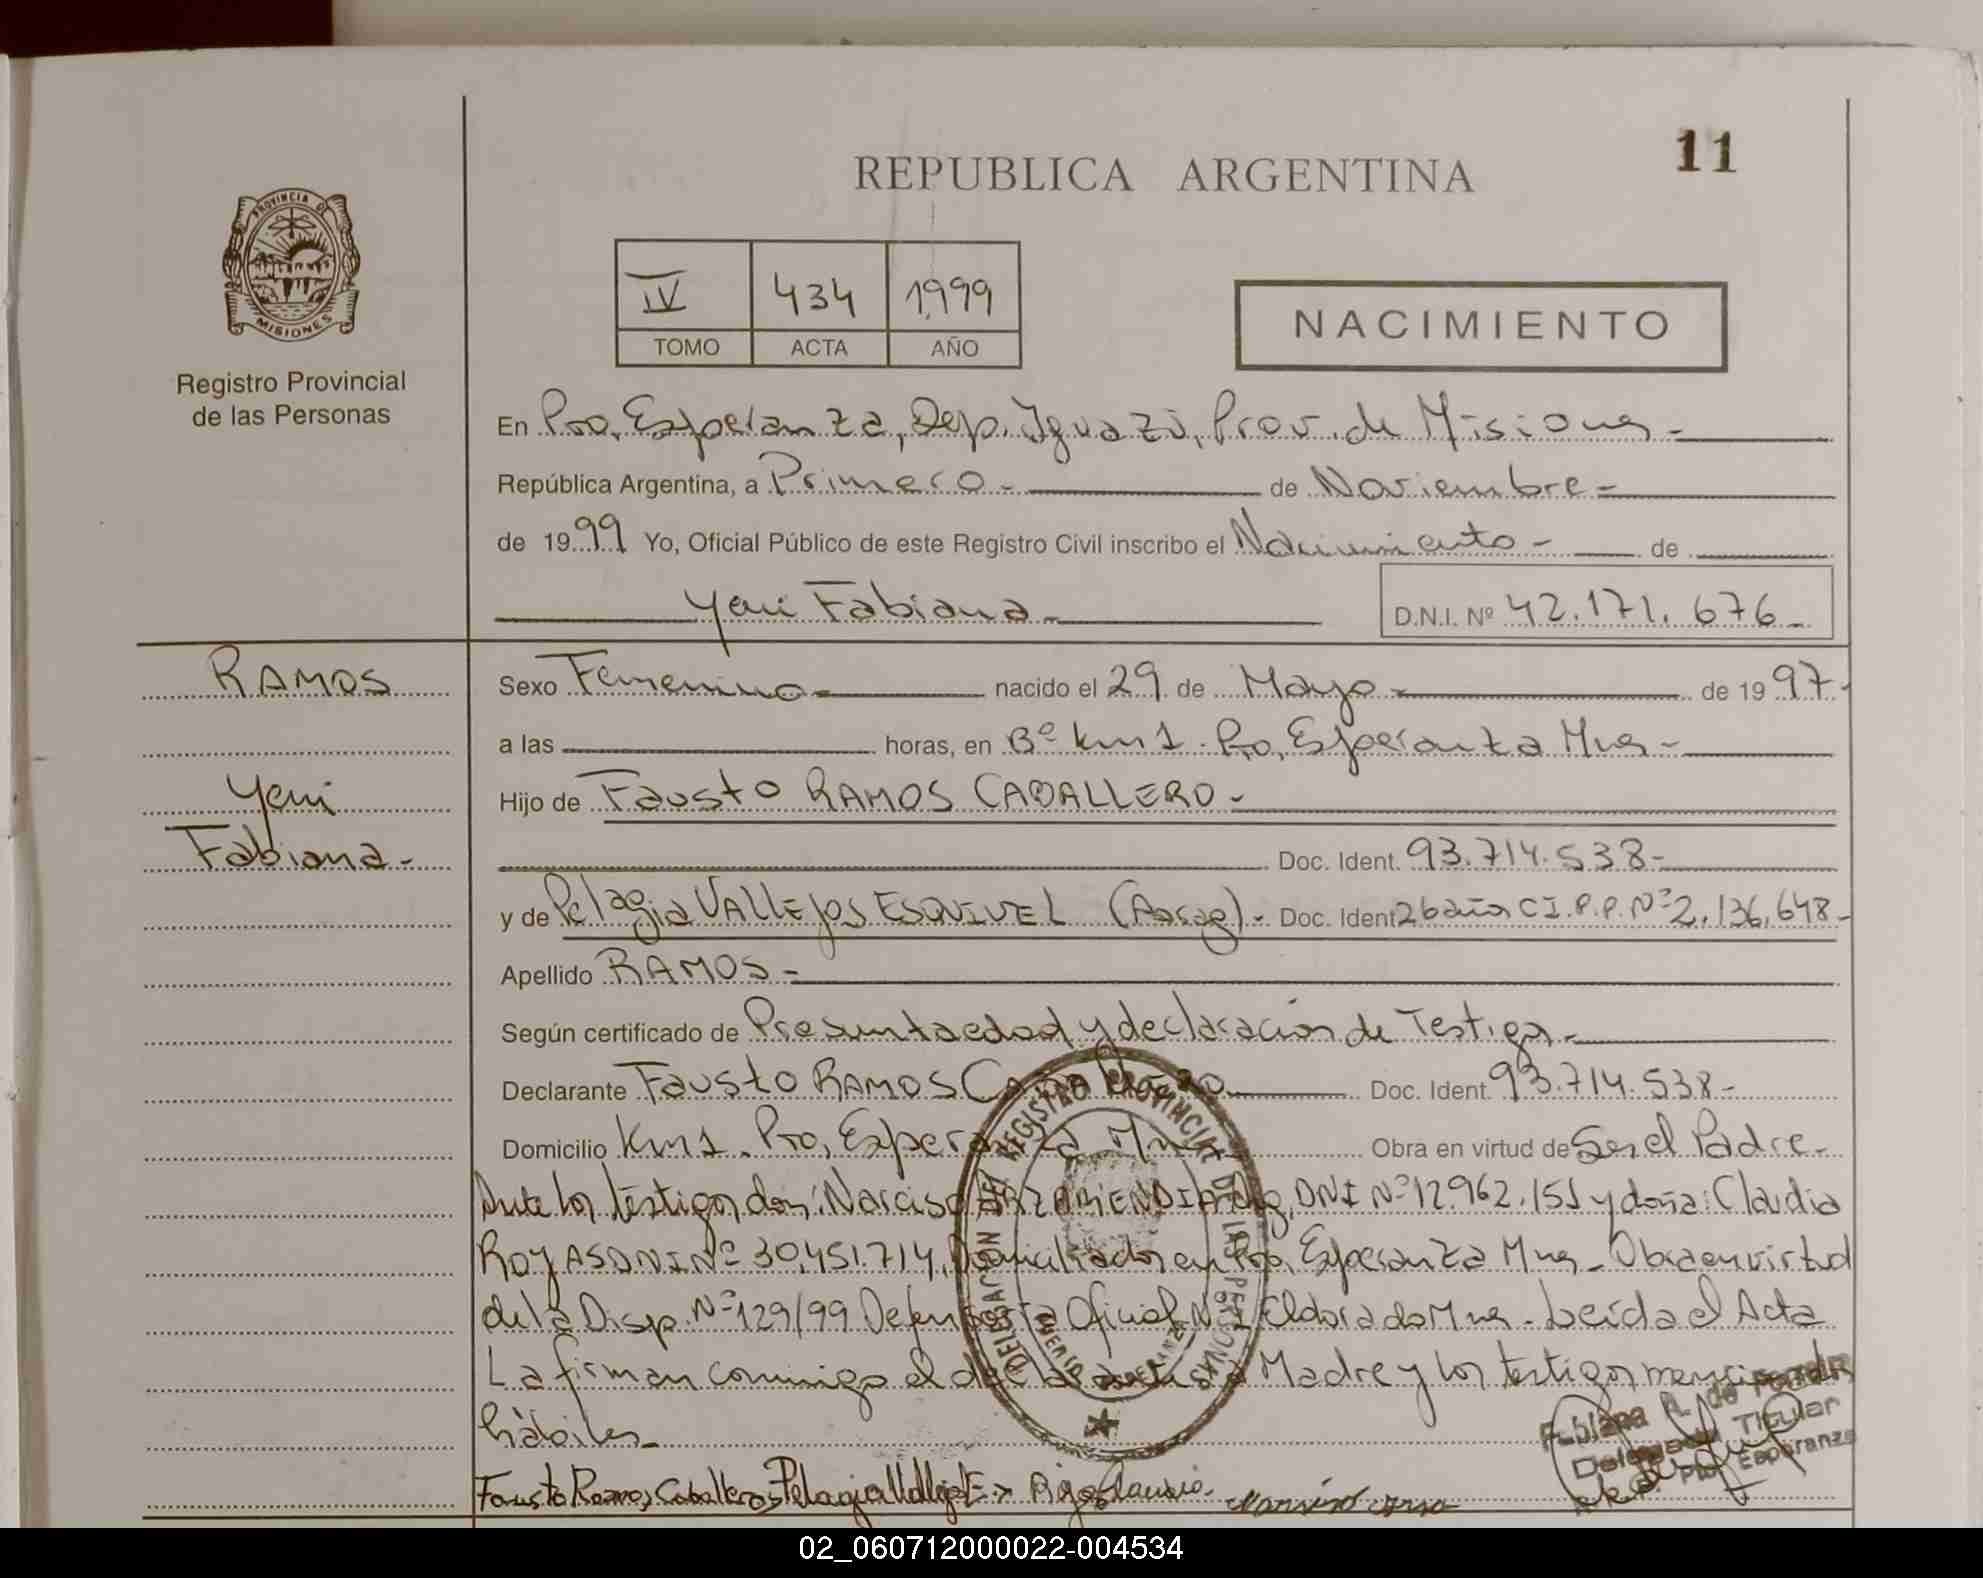 11
REPUBLICA ARGENTINA
PROVINCIA DE
MISIONES
Registro Provincial
de las Personas
IV 434 1999
TOMO ACTA AÑO
NACIMIENTO
En Pto, Esperanza, Dep. Iguazú, Prov. de Misiones -
República Argentina, a Primero - de Noviembre -
de 1999 Yo, Oficial Público de este Registro Civil inscribo el Nacimiento - de
Yeni Fabiana - D.N.I. Nº 42.171.676 -
RAMOS
Yeni
Fabiana -
Sexo Femenino - nacido el 29 de Mayo - de 1997 -
a las horas, en Bº km 1 - Pto, Esperanza Mnes -
Hijo de Fausto RAMOS CABALLERO -
Doc. Ident. 93.714.538 -
y de Pelagia VALLEJOS ESQUIVEL (Parag) - Doc. Ident 26 años C I. P. P. Nº 2.136.648 -
Apellido RAMOS -
Según certificado de Presunta edad y declaración de Testigos -
Declarante Fausto RAMOS CABALLERO Doc. Ident. 93.714.538 -
Domicilio Km 1 - Pto, Esperanza Mnes Obra en virtud de Ser el Padre -
Ante los téstigos don: Narciso ARZAMENDIA Arg, DNI Nº 12.962.151 y doña: Claudia
ROJAS DNI Nº 30.451.714, Domiciliados en Pto, Esperanza Mnes - Obra en virtud
de la Disp. Nº 129/99 Defensoría Oficial Nº 1 Eldorado Mnes - Leída el Acta
La firman conmigo el declarante, la Madre y los testigos mencionados
hàbiles -
DELEGACION DEL REGISTRO PROVINCIAL DE LAS PERSONAS
Fabiana A. de
Delegada Titular
Pto. Esperanza
Fausto Ramos Caballero Pelagia Vallejos E Claudia
02_060712000022-004534